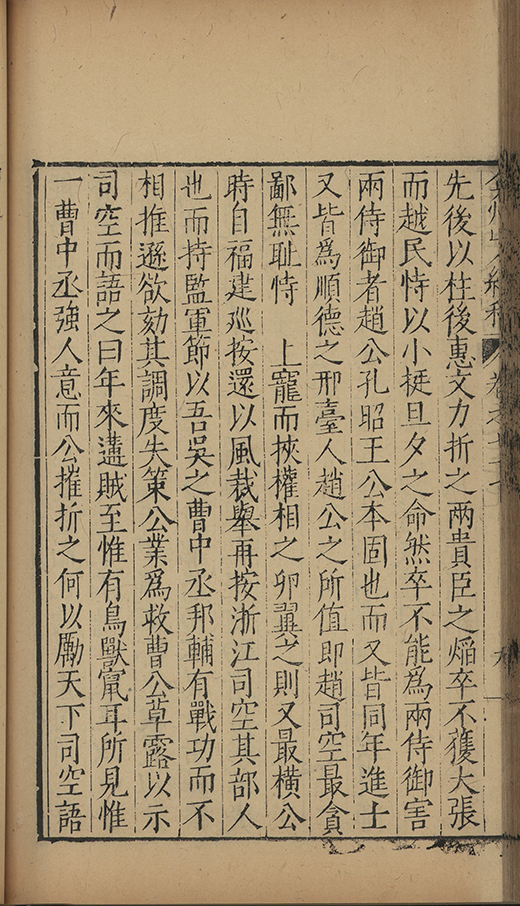 先後以柱後惠文力折之兩貴臣之焰卒不獲大張
而越民恃以小挺旦夕之命然卒不能爲兩侍御害
兩侍御者趙公孔昭王公本固也而又皆同年進士
又皆爲順德之邢臺人趙公之所值即趙司空最貪
鄙無耻恃　上寵而挾權相之卵翼之則又最橫公
時自福建巡按還以風裁舉再按浙江司空其部人
也而持監軍節以吾吳之曹中丞邦輔有戰功而不
相推遜欲劾其調度失策公業爲救曹公草露以示
司空而語之曰年來遘賊至惟有鳥獸竄耳所見惟
一曹中丞強人意而公摧折之何以勵天下司空語